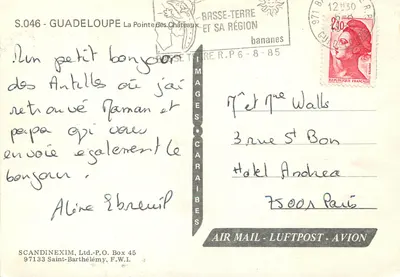 S.046 - GUADELOUPE La Pointe des Châteaux
BASSE-TERRE
ET SA RÉGION
bananes
R.P 6-8-85
2,20
Un petit bonjour
des Antilles où j'ai
retrouvé Maman et
papa qui vous
envoie également le
bonjour.
Aline Ebreuil
IMAGES CARAIBES
Mr et Mme Walls
3 rue St Bon
Hotel Andrea
75001 Paris
AIR MAIL - LUFTPOST - AVION
SCANDINEXIM, Ltd.-P.O. Box 45
97133 Saint-Barthélemy, F.W.I.